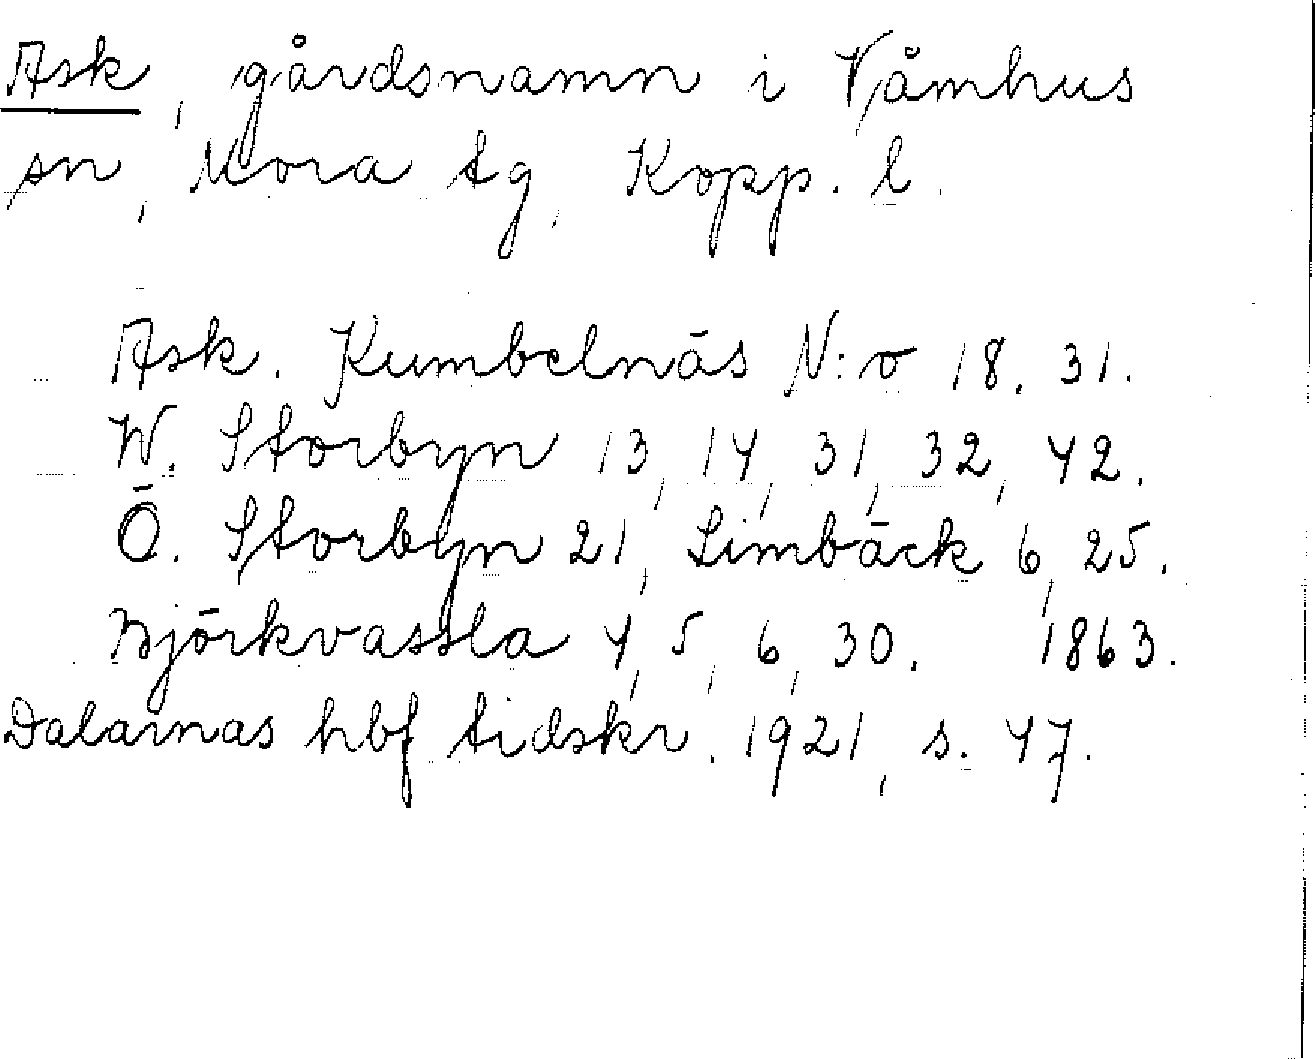 Ask, gårdsnamn i Våmhus
sn, Mora tg, Kopp. l.
Ask. Kumbelnäs N:o 18. 31.
W. Storbyn 13, 14, 31, 32, 42.
Ö. Storbyn 21, Limbäck 6, 25.
Björkvassla 4, 5, 6, 30. 1863.
Dalarnas hbf tidskr. 1921, s. 47.